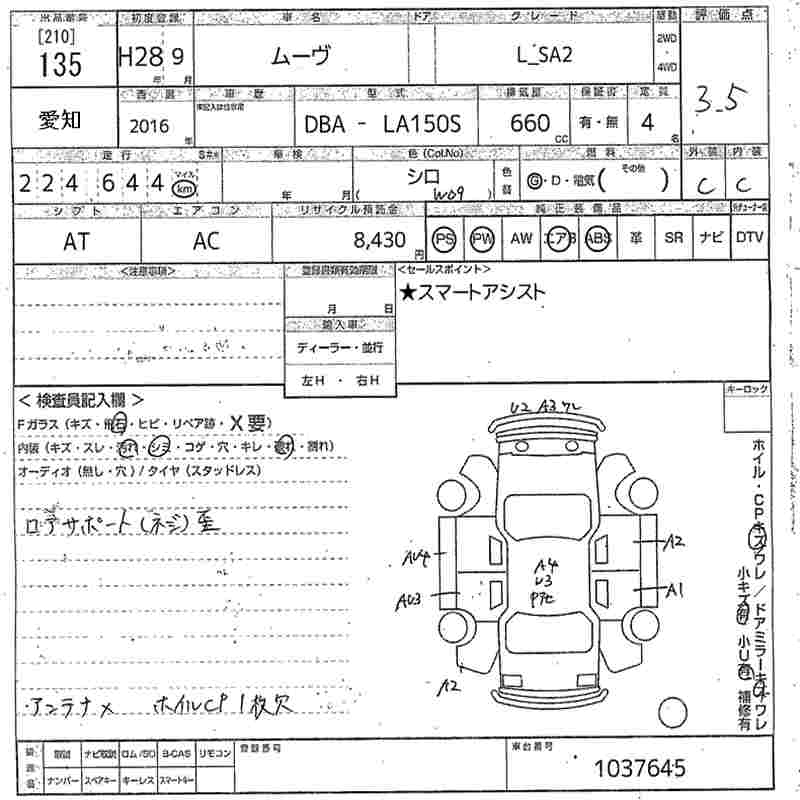 出品番号 初度登録 車名 ドア グレード 駆動 評価点
[210] 135 H28 9 年 月 ムーヴ L_SA2 2WD 4WD 3.5
愛知 2016 年 車歴 型式 DBA - LA150S 排気量 660 CC 保証書 有・無 定員 4 名
走行 車検 色(Col.No) 燃料 外装 内装
224 644 マイル km 年 月 シロ ( W09 ) 色替 G・D・電気( その他 ) C C
シフト エアコン リサイクル預託金 純正装備品
AT AC 8,430 円 PS PW AW エアB ABS 革 SR ナビ DTV
<注意事項> 登録書類有効期限 <セールスポイント>
月 日 ★スマートアシスト
輸入車
ディーラー・並行
左H ・ 右H
<検査員記入欄> キーロック
Fガラス (キズ・飛石・ヒビ・リペア跡・X要)
内装 (キズ・スレ・汚れ・シミ・コゲ・穴・キレ・割れ)
オーディオ (無し・穴) / タイヤ (スタッドレス)
ロアサポート(ネジ)歪
アンテナ× ホイルCP 1枚欠
U2 A3 ワレ
AU4
AU3
A2
A4
U3
A2
A1
ホイル・CPキズワレ/ドアミラーキズワレ
小キズ有 小U有 補修有
取説 ナビ取説 ロム/SD B-CAS リモコン 登録番号 車台番号
ナンバー スペアキー キーレス スマートキー 1037645